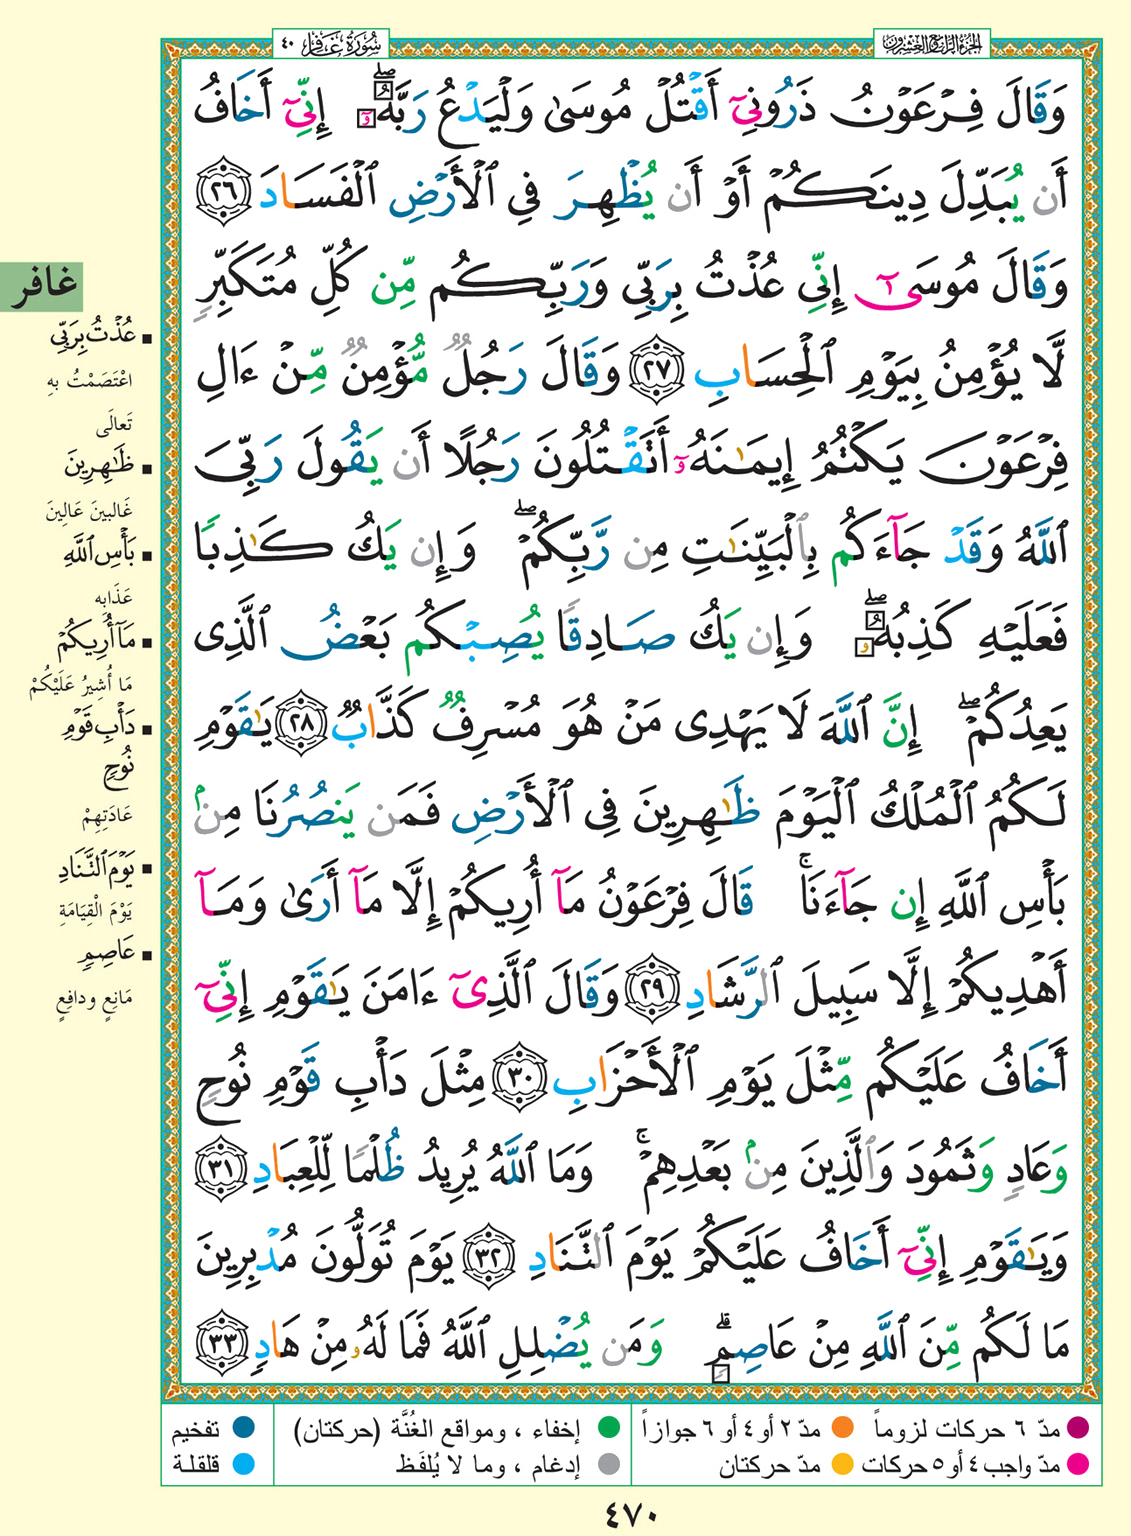 الجزء الرابع والعشرون
سُورَةُ غَافِر ٤٠
وَقَالَ فِرۡعَوۡنُ ذَرُونِيٓ أَقۡتُلۡ مُوسَىٰ وَلۡيَدۡعُ رَبَّهُۥٓۖ إِنِّيٓ أَخَافُ
أَن يُبَدِّلَ دِينَكُمۡ أَوۡ أَن يُظۡهِرَ فِي ٱلۡأَرۡضِ ٱلۡفَسَادَ ٢٦
وَقَالَ مُوسَىٰٓ إِنِّي عُذۡتُ بِرَبِّي وَرَبِّكُم مِّن كُلِّ مُتَكَبِّرٖ
لَّا يُؤۡمِنُ بِيَوۡمِ ٱلۡحِسَابِ ٢٧ وَقَالَ رَجُلٞ مُّؤۡمِنٞ مِّنۡ ءَالِ
فِرۡعَوۡنَ يَكۡتُمُ إِيمَٰنَهُۥٓ أَتَقۡتُلُونَ رَجُلًا أَن يَقُولَ رَبِّيَ
ٱللَّهُ وَقَدۡ جَآءَكُم بِٱلۡبَيِّنَٰتِ مِن رَّبِّكُمۡۖ وَإِن يَكُ كَٰذِبٗا
فَعَلَيۡهِ كَذِبُهُۥۖ وَإِن يَكُ صَادِقٗا يُصِبۡكُم بَعۡضُ ٱلَّذِي
يَعِدُكُمۡۖ إِنَّ ٱللَّهَ لَا يَهۡدِي مَنۡ هُوَ مُسۡرِفٞ كَذَّابٞ ٢٨ يَٰقَوۡمِ
لَكُمُ ٱلۡمُلۡكُ ٱلۡيَوۡمَ ظَٰهِرِينَ فِي ٱلۡأَرۡضِ فَمَن يَنصُرُنَا مِنۢ
بَأۡسِ ٱللَّهِ إِن جَآءَنَاۚ قَالَ فِرۡعَوۡنُ مَآ أُرِيكُمۡ إِلَّا مَآ أَرَىٰ وَمَآ
أَهۡدِيكُمۡ إِلَّا سَبِيلَ ٱلرَّشَادِ ٢٩ وَقَالَ ٱلَّذِيٓ ءَامَنَ يَٰقَوۡمِ إِنِّيٓ
أَخَافُ عَلَيۡكُم مِّثۡلَ يَوۡمِ ٱلۡأَحۡزَابِ ٣٠ مِثۡلَ دَأۡبِ قَوۡمِ نُوحٖ
وَعَادٖ وَثَمُودَ وَٱلَّذِينَ مِنۢ بَعۡدِهِمۡۚ وَمَا ٱللَّهُ يُرِيدُ ظُلۡمٗا لِّلۡعِبَادِ ٣١
وَيَٰقَوۡمِ إِنِّيٓ أَخَافُ عَلَيۡكُمۡ يَوۡمَ ٱلتَّنَادِ ٣٢ يَوۡمَ تُوَلُّونَ مُدۡبِرِينَ
مَا لَكُم مِّنَ ٱللَّهِ مِنۡ عَاصِمٖۗ وَمَن يُضۡلِلِ ٱللَّهُ فَمَا لَهُۥ مِنۡ هَادٖ ٣٣
غافر
■ عُذۡتُ بِرَبِّي
اعْتَصَمْتُ بِهِ
تَعالَى
■ ظَٰهِرِينَ
غَالِبينَ عَالِينَ
■ بَأۡسِ ٱللَّهِ
عَذَابِه
■ مَآ أُرِيكُمۡ
مَا أُشِيرُ عَلَيْكُمْ
■ دَأۡبِ قَوۡمِ
نُوحٖ
عَادَتِهِمْ
■ يَوۡمَ ٱلتَّنَادِ
يَوْمَ الْقِيَامَةِ
■ عَاصِمٖ
مَانِعٍ ودافِعٍ
مدّ ٦ حركات لزوماً
مدّ ٢ أو ٤ أو ٦ جوازاً
إخفاء ، ومواقع الغُنَّة (حركتان)
تفخيم
مدّ واجب ٤ أو ٥ حركات
مدّ حركتان
إدغام ، وما لا يُلفَظ
قلقلة
٤٧٠